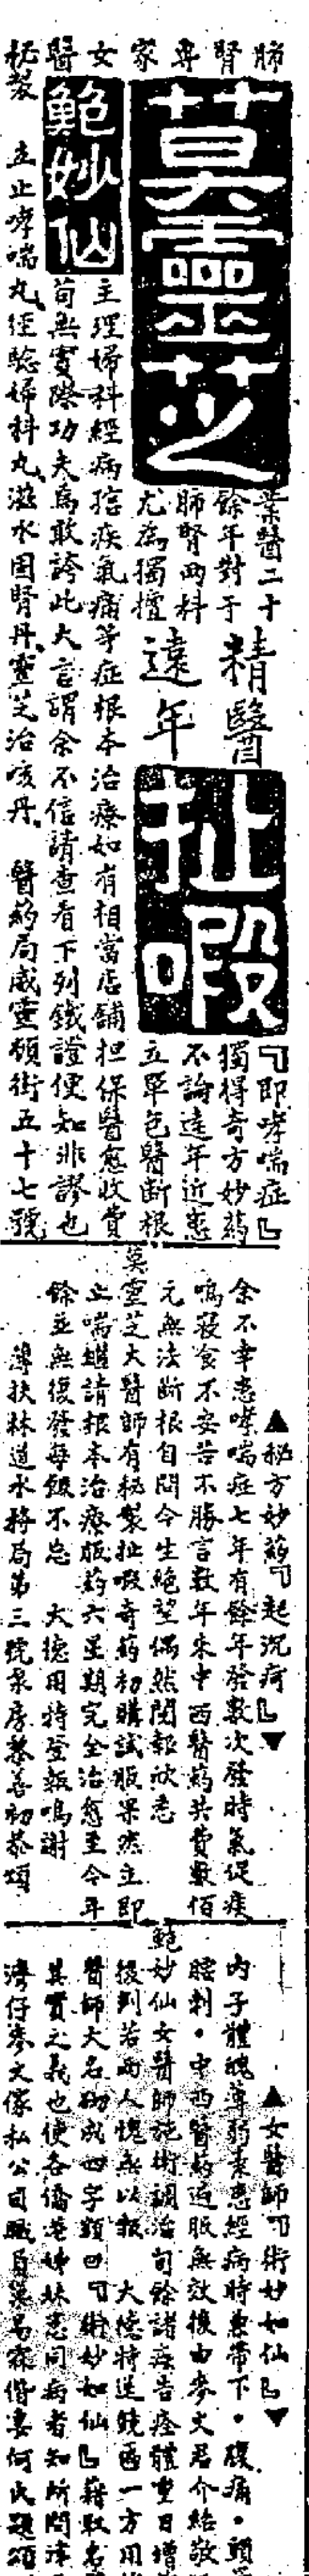 肺腎專家
莫靈芝
業醫二十
餘年對于
肺腎兩科
尤為獨擅
精醫
遠年
扯嘏
『即哮喘症』
獨得奇方妙葯
不論遠年近患
立單包醫断根
女醫
鮑妙仙
主理婦科經病痞疾氣痛等症根本治療如有相當店舖担保醫愈收費
苟無實際功夫焉敢誇此大言謂余不信請查看下列鐵證便知非謬也
秘製 立止哮喘丸經驗婦科丸滋水固腎丹靈芝治咳丹 醫葯局威靈頓街五十七號
▲秘方妙葯『起沉疴』▼
余不幸患哮喘症七年有餘年發數次發時氣促痰
鳴寢食不安苦不勝言數年來中西醫葯共費數佰
元無法断根自問今生絕望偶然閱報欣悉
莫靈芝大醫師有秘製扯嘏奇葯初購試服果然立即
止喘繼請根本治療服葯六星期完全治愈至今年
餘並無復發每飯不忘 大德用特登報鳴謝
薄扶林道水務局第三號泵房蔡善初恭頌
▲女醫師『術妙如仙』▼
內子體魄尊弱素患經病時兼帶下・腹痛・頭
腰刺・中西醫葯遍服無效後由麥文君介紹敬
鮑妙仙女醫師施術調治旬餘諸恙告痊體重日增
後判若兩人愧無以報 大德特送鏡畫一方用
醫師大名砌成四字額曰『術妙如仙』藉駁名
其實之義也使各僑港姊妹患同病者知所問津
灣仔麥文傢私公司職員葉易霖偕妻何氏題頌